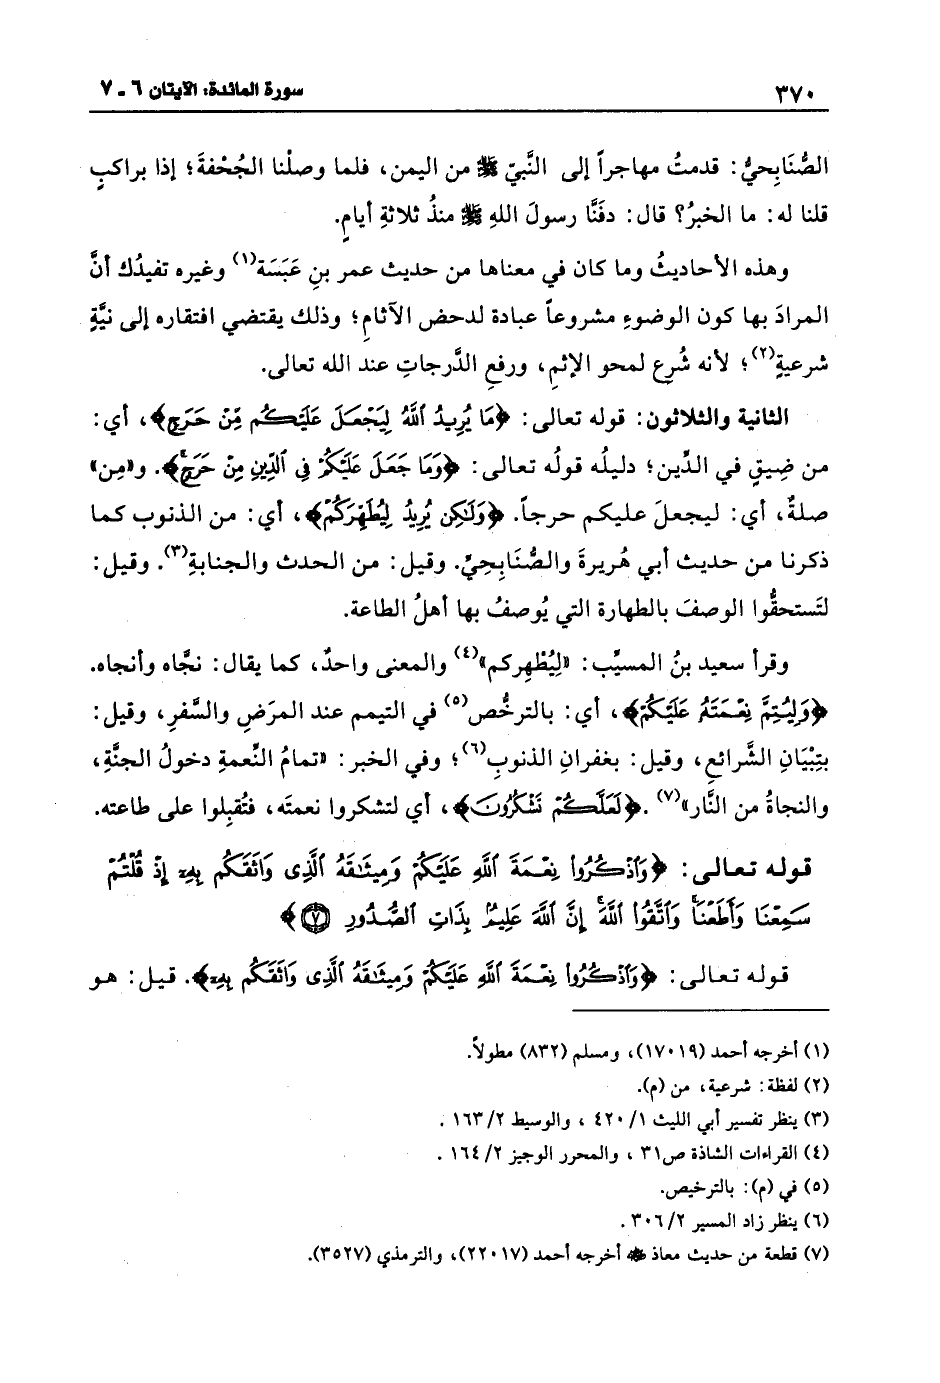 ٣٧٠ سورة المائدة: الآيتان ٦ - ٧
الصُّنَابِحيُّ: قدمتُ مهاجراً إلى النَّبيّ ﷺ من اليمن، فلما وصلْنا الجُحْفةَ؛ إذا براكبٍ
قلنا له: ما الخبرُ؟ قال: دفَنَّا رسولَ اللهِ ﷺ منذُ ثلاثةِ أيامٍ.
وهذه الأحاديثُ وما كان في معناها من حديث عمر بنِ عَبَسَة(١) وغيره تفيدُك أنَّ
المرادَ بها كون الوضوءِ مشروعاً عبادة لدحض الآثامِ؛ وذلك يقتضي افتقاره إلى نيَّةٍ
شرعيةٍ(٢)؛ لأنه شُرِع لمحو الإثمِ، ورفعِ الدَّرجاتِ عند الله تعالى.
الثانية والثلاثون: قوله تعالى: ﴿مَا يُرِيدُ ٱللَّهُ لِيَجْعَلَ عَلَيْكُم مِّنْ حَرَجٍ﴾، أي:
من ضِيقٍ في الدِّين؛ دليلُه قولُه تعالى: ﴿وَمَا جَعَلَ عَلَيْكُمْ فِى ٱلدِّينِ مِنْ حَرَجٍۚ﴾. و«مِن»
صلةٌ، أي: ليجعلَ عليكم حرجاً. ﴿وَلَٰكِن يُرِيدُ لِيُطَهِّرَكُمْ﴾، أي: من الذنوب كما
ذكرنا من حديث أبي هُريرةَ والصُّنَابِحِيِّ. وقيل: من الحدث والجنابةِ(٣). وقيل:
لتَستحقُّوا الوصفَ بالطهارة التي يُوصفُ بها أهلُ الطاعة.
وقرأ سعيد بنُ المسيِّب: «لِيُطْهِركم»(٤) والمعنى واحدٌ، كما يقال: نجَّاه وأنجاه.
﴿وَلِيُتِمَّ نِعْمَتَهُۥ عَلَيْكُمْ﴾، أي: بالترخُّص(٥) في التيمم عند المرَضِ والسَّفرِ، وقيل:
بتِبْيَانِ الشَّرائعِ، وقيل: بغفرانِ الذنوبِ(٦)؛ وفي الخبر: «تمامُ النِّعمةِ دخولُ الجنَّةِ،
والنجاةُ من النَّار»(٧). ﴿لَعَلَّكُمْ تَشْكُرُونَ﴾، أي لتشكروا نعمتَه، فتُقبِلوا على طاعته.
قوله تعالى: ﴿وَٱذْكُرُوا۟ نِعْمَةَ ٱللَّهِ عَلَيْكُمْ وَمِيثَٰقَهُ ٱلَّذِى وَاثَقَكُم بِهِۦٓ إِذْ قُلْتُمْ
سَمِعْنَا وَأَطَعْنَاۖ وَٱتَّقُوا۟ ٱللَّهَۚ إِنَّ ٱللَّهَ عَلِيمٌۢ بِذَاتِ ٱلصُّدُورِ ۝٧﴾
قوله تعالى: ﴿وَٱذْكُرُوا۟ نِعْمَةَ ٱللَّهِ عَلَيْكُمْ وَمِيثَٰقَهُ ٱلَّذِى وَاثَقَكُم بِهِۦٓ﴾. قيل: هو
(١) أخرجه أحمد (١٧٠١٩)، ومسلم (٨٣٢) مطولاً.
(٢) لفظة: شرعية، من (م).
(٣) ينظر تفسير أبي الليث ١/ ٤٢٠ ، والوسيط ٢/ ١٦٣ .
(٤) القراءات الشاذة ص٣١ ، والمحرر الوجيز ٢/ ١٦٤ .
(٥) في (م): بالترخيص.
(٦) ينظر زاد المسير ٢/ ٣٠٦ .
(٧) قطعة من حديث معاذ ﷺ أخرجه أحمد (٢٢٠١٧)، والترمذي (٣٥٢٧).